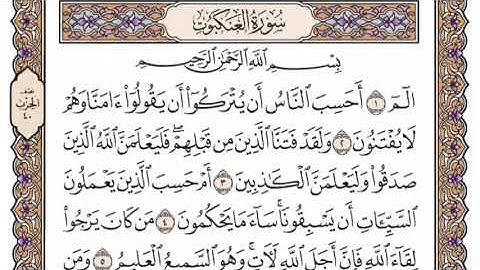 سُورَةُ العَنكَبُوتِ
بِسْمِ ٱللَّهِ ٱلرَّحْمَٰنِ ٱلرَّحِيمِ
الٓمٓ ١ أَحَسِبَ ٱلنَّاسُ أَن يُتْرَكُوٓا۟ أَن يَقُولُوٓا۟ ءَامَنَّا وَهُمْ
لَا يُفْتَنُونَ ٢ وَلَقَدْ فَتَنَّا ٱلَّذِينَ مِن قَبْلِهِمْ ۖ فَلَيَعْلَمَنَّ ٱللَّهُ ٱلَّذِينَ
صَدَقُوا۟ وَلَيَعْلَمَنَّ ٱلْكَٰذِبِينَ ٣ أَمْ حَسِبَ ٱلَّذِينَ يَعْمَلُونَ
ٱلسَّيِّـَٔاتِ أَن يَسْبِقُونَا ۚ سَآءَ مَا يَحْكُمُونَ ٤ مَن كَانَ يَرْجُوا۟
لِقَآءَ ٱللَّهِ فَإِنَّ أَجَلَ ٱللَّهِ لَـَٔاتٍ ۚ وَهُوَ ٱلسَّمِيعُ ٱلْعَلِيمُ ٥ وَمَن
الحِزْب
٤٠